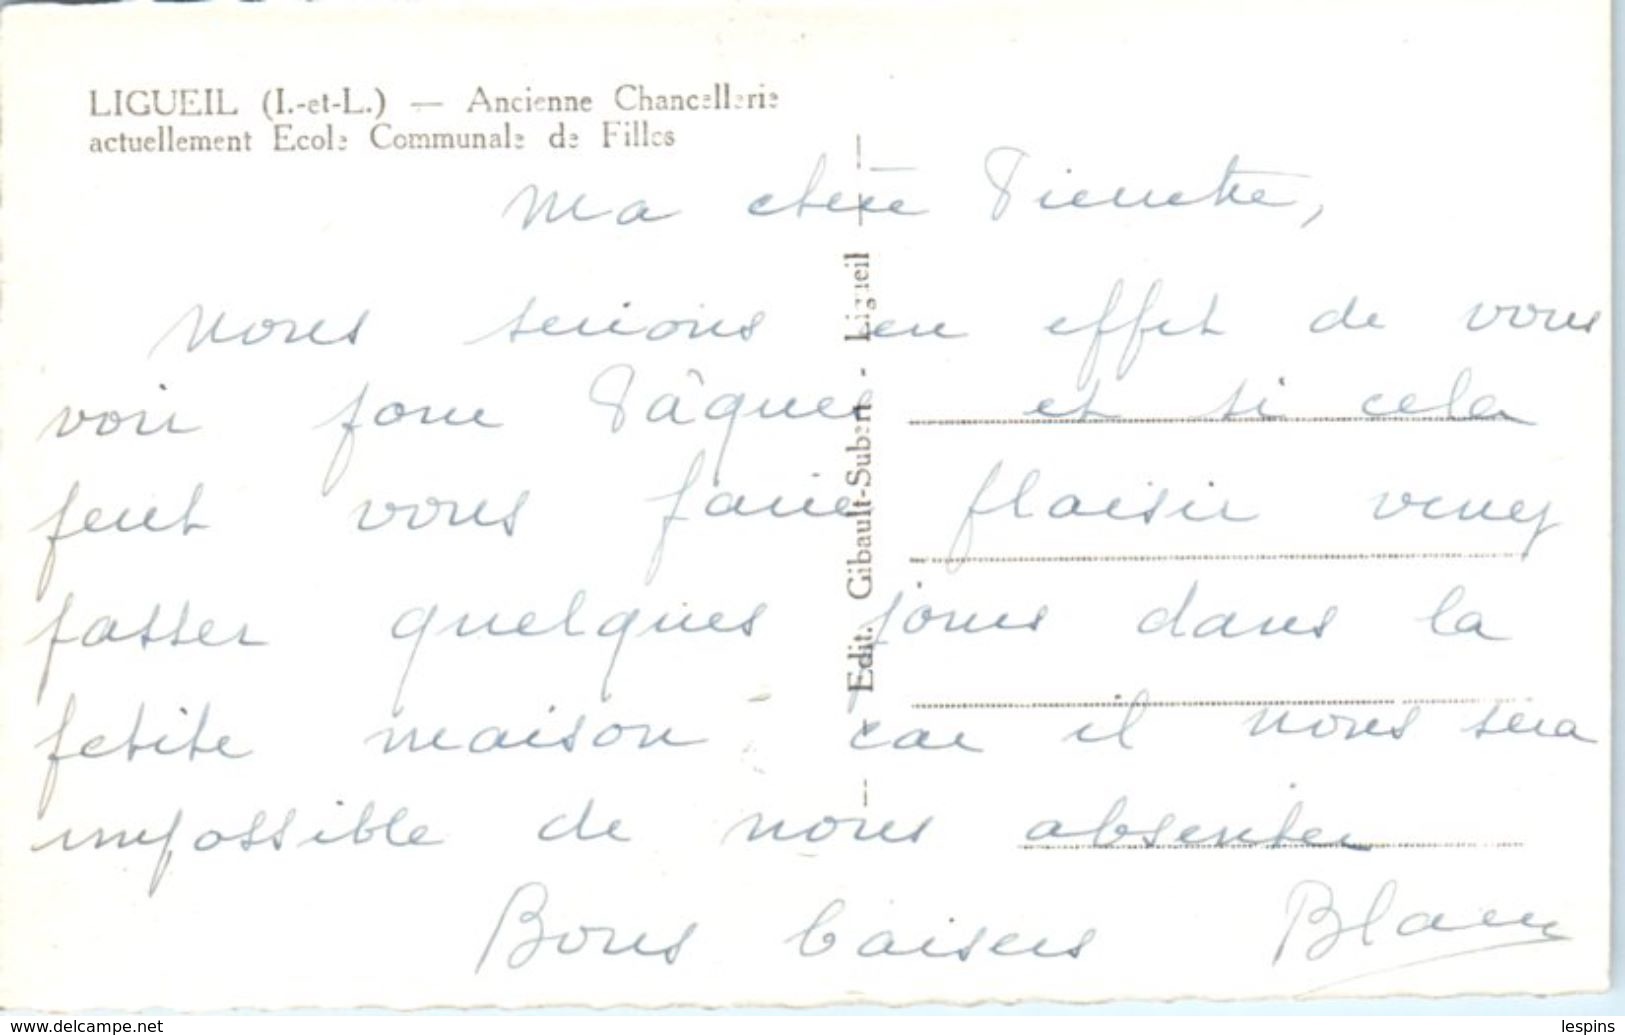 LIGUEIL (I.-et-L.) — Ancienne Chancellerie
actuellement Ecole Communale de Filles
Ma chère Pierrette,
Nous serions en effet de vous
voir pour Pâques et si cela
peut vous faire plaisir venez
passer quelques jours dans la
petite maison - car il nous sera
impossible de nous absenter
Bons baisers
Edit. Gibault-Subert - Ligueil
www.delcampe.net
lespins